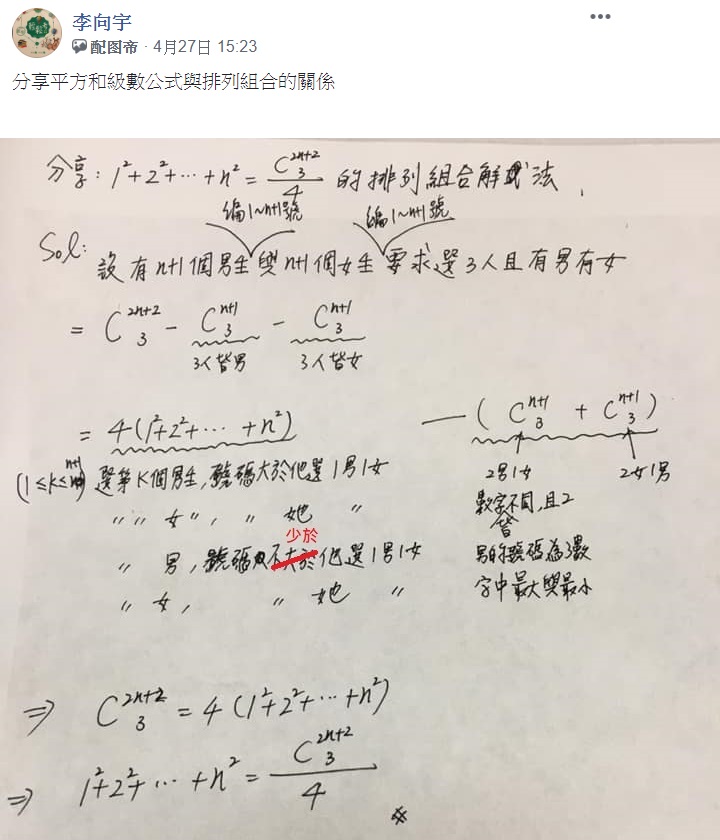 李向宇
配图帝 · 4月27日 15:23
分享平方和級數公式與排列組合的關係
分享: 1²+2²+⋯+n² = C^{2n+2}_3 / 4 的排列組合解法
編1~n+1號 編1~n+1號
Sol: 設有n+1個男生與n+1個女生要求選3人且有男有女
= C^{2n+2}_3 - C^{n+1}_3 - C^{n+1}_3
3人皆男 3人皆女
= 4(1²+2²+⋯+n²) — (C^{n+1}_3 + C^{n+1}_3)
(1≤k≤n+1) 選第K個男生,號碼大於他選1男1女
〃 〃 女〃, 〃 她 〃
少於
〃 男, 號碼不大於他選1男1女
〃 女, 〃 她 〃
2男1女 2女1男
數字皆不同,且2
男的號碼為3數
字中最大與最小
⇒ C^{2n+2}_3 = 4(1²+2²+⋯+n²)
⇒ 1²+2²+⋯+n² = C^{2n+2}_3 / 4